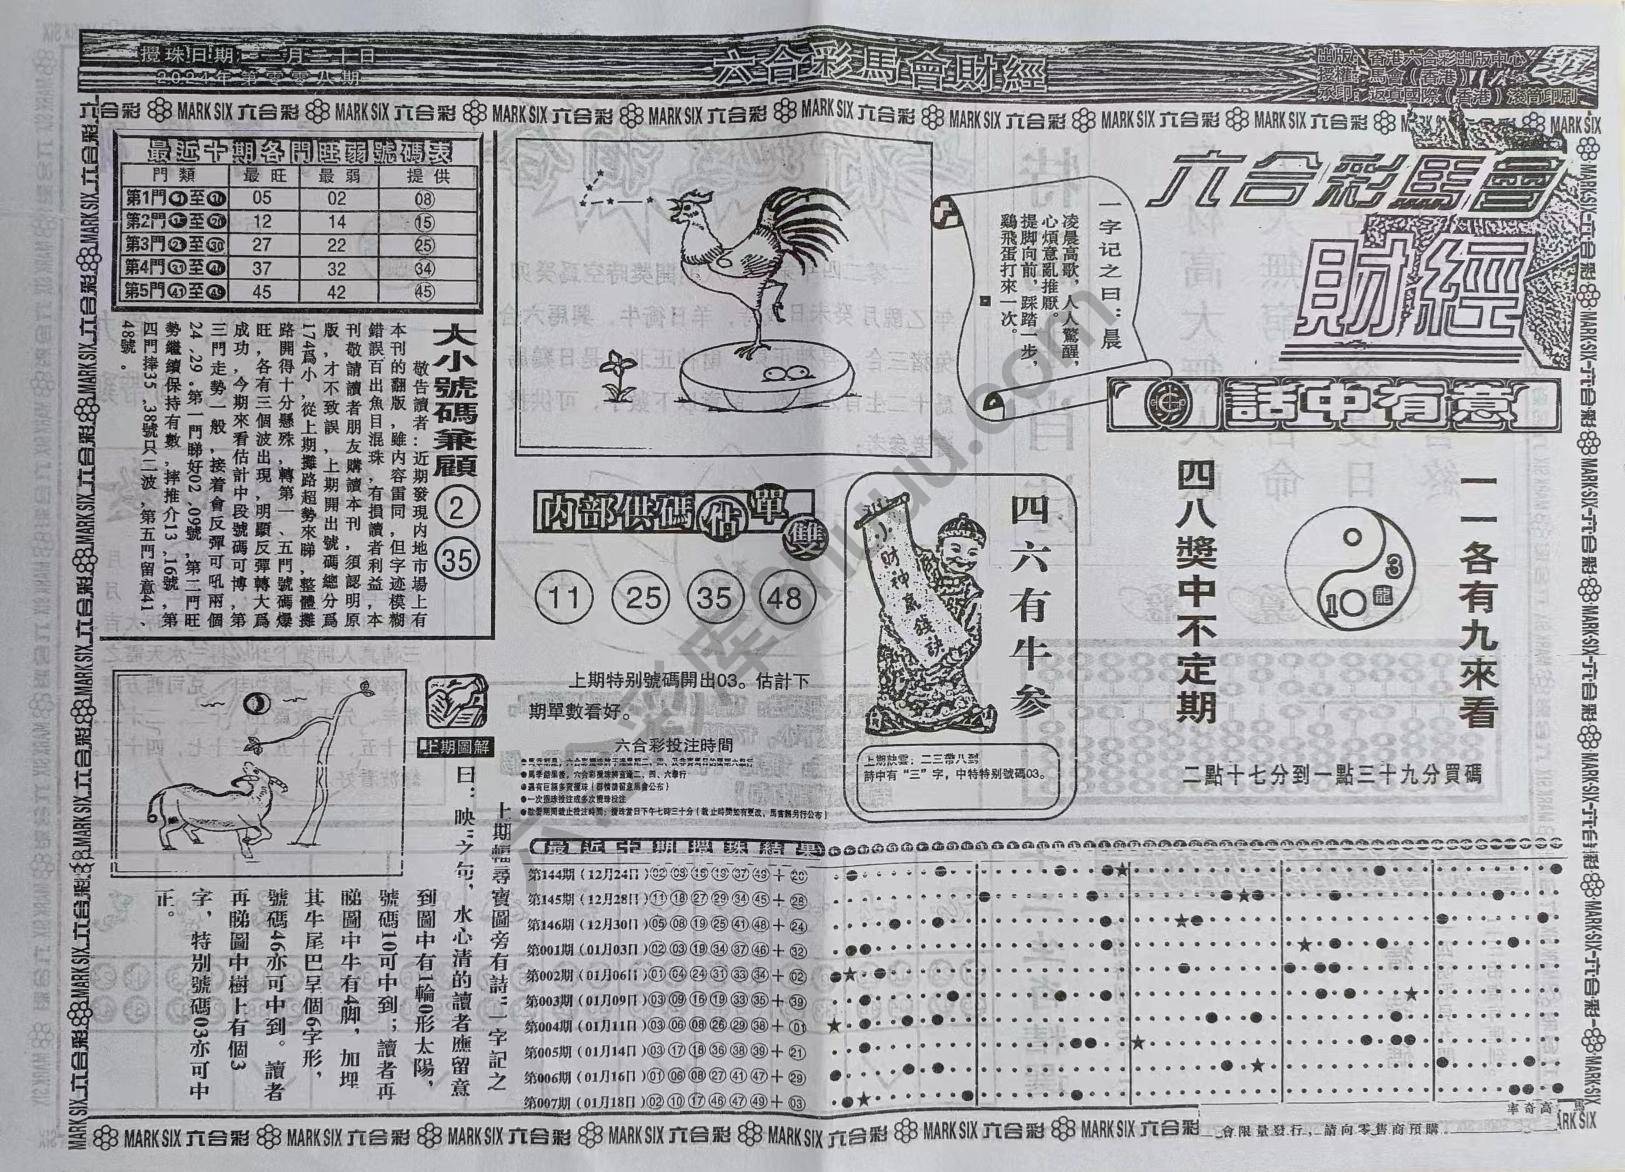 攪珠日期:一月二十日
2024年第零零八期
六合彩馬會財經
出版:香港六合彩出版中心
授權:馬會(香港)
承印:返真國際(香港)滾筒印刷
六合彩 MARK SIX 六合彩 MARK SIX 六合彩 MARK SIX 六合彩
六合彩馬會
財經
最近十期各門旺弱號碼表
門類 最旺 最弱 提供
第1門 至 05 02 08
第2門 至 12 14 15
第3門 至 27 22 25
第4門 至 37 32 34
第5門 41 至 49 45 42 45
大小號碼兼顧
2
35
敬告讀者:近期發現内地市場上有
本刊的翻版,雖内容雷同,但字迹模糊
錯誤百出魚目混珠,有損讀者利益,本
刊敬請讀者朋友購讀本刊,須認明原
版,才不致誤,上期開出號碼總分爲
174爲小,從上期攤路超勢來睇,整體攤
路開得十分懸殊,轉第一、五門號碼爆
旺,各有三個波出現,明顯反彈轉大爲
成功,今期來看估計中段號碼可博,第
三門走勢一般,接着會反彈可吼兩個
24.29。第一門睇好02.09號,第二門旺
勢繼續保持有數,摔推介13.16號,第
四門捧35.38號只二波,第五門留意41、
48號。
一字记之曰:晨
凌晨高歌,人人驚醒,
心煩意亂推厭。
提脚向前,踩踏一步,
鷄飛蛋打來一次。
話中有意
一一各有九來看
四八獎中不定期
3
10
龍
二點十七分到一點三十九分買碼
内部供碼估單雙
11 25 35 48
上期特别號碼開出03。估計下
期單數看好。
六合彩投注時間
●一次攪珠投注或多次攪珠投注
四六有牛参
小財神氣錢訣
上期訣雲:二三帶八到
詩中有“三”字,中特特别號碼03。
上期圖解
上期幅尋寶圖旁有詩:一字記之
曰:映;之句,水心清的讀者應留意
到圖中有一輪0形太陽,
號碼10可中到;讀者再
睇圖中牛有4脚,加埋
其牛尾巴孠個6字形,
號碼46亦可中到。讀者
再睇圖中樹上有個3
字,特别號碼03亦可中
正。
最近十期攪珠結果
第144期(12月24日)02 09 15 19 37 49+20
第145期(12月28日)11 18 27 29 34 45+28
第146期(12月30日)05 08 19 25 41 48+24
第001期(01月03日)02 03 19 34 37 46+32
第002期(01月06日)01 04 24 31 33 34+02
第003期(01月09日)03 09 16 19 33 35+39
第004期(01月11日)03 06 08 26 29 38+01
第005期(01月14日)03 17 18 36 38 39+21
第006期(01月16日)01 06 08 27 41 47+29
第007期(01月18日)02 10 17 46 47 49+03
馬高奇率
會限量發行,請向零售商預購
MARK SIX 六合彩 MARK SIX 六合彩 MARK SIX 六合彩 MARK SIX 六合彩